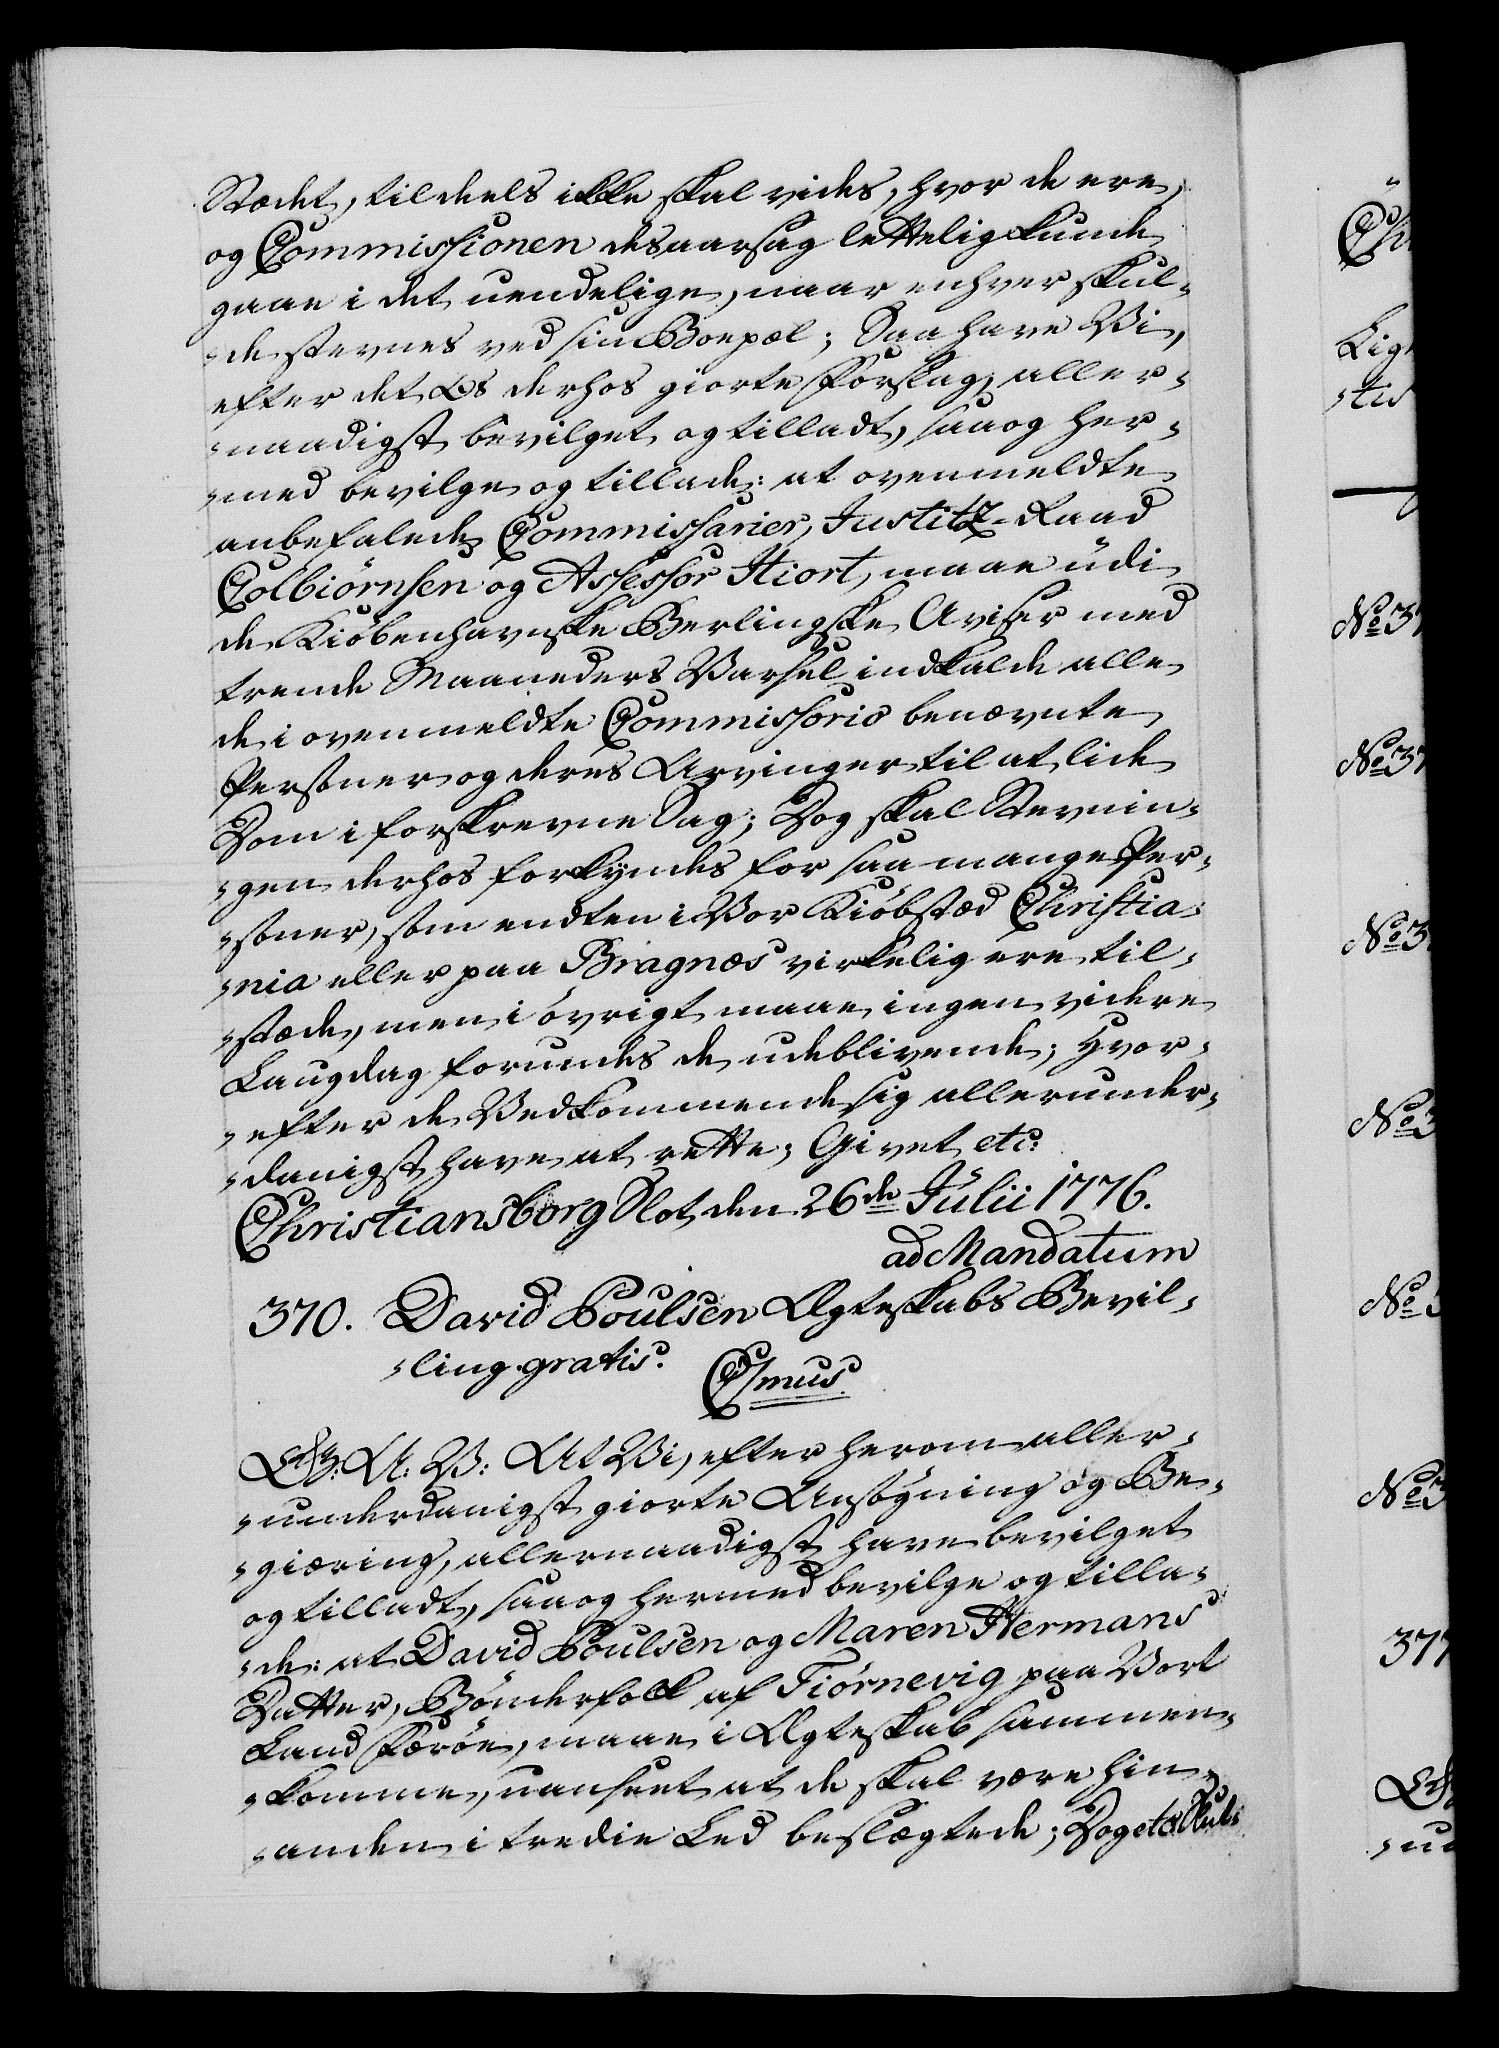 Stædet, tildeels ikke skal vides, hvor de ere,
og Commissionen desaarsag lettelig kunde
gaae i det uendelige, naar enhver skul-
-de stevnes ved sin Boepæl; Saa have Vi,
efter det Os derhos giorte Forslag, aller-
-naadigst bevilget og tilladt, saa og her-
-med bevilge og tillade: at ovenmeldte
anbefalede Commissarier, Justitz-Raad
Colbiørnsen og Assessor Hiort, maae udi
de Kiøbenhavnske Berlingske Aviser med
trende Maaneders Varsel indkalde alle
de i ovenmeldte Commissorio benævnte
Personer og deres Arvinger til at lide
Dom i forskrevne Sag; Dog skal Stevnin-
-gen derhos forkyndes for saa mange Per-
-soner, som endten i Vor Kiøbstæd Christia-
-nia eller paa Bragnæs virkelig ere til-
-stæde, men i øvrigt maae ingen videre
Laugdag forundes de udeblivende; Hvor-
-efter de Vedkommende sig allerunder-
-danigst have at rette; Givet etc:
Christiansborg Slot den 26de Julii 1776.
ad Mandatum
370. David Poulsen Ægteskabs Bevil-
-ling. gratis.
Csmus.
G: A: V: At Vi, efter herom aller-
-underdanigst giorte Ansøgning og Be-
-giæring, allernaadigst have bevilget
og tilladt, saa og hermed bevilge og tilla-
-de: at David Poulsen og Maren Hermans
Datter, Bønderfolk af Tiørnevig paa Vort
Land Færøe, maae i Ægteskab sammen-
-komme, uanseet at de skal være hin-
-anden i tredie Led beslægtede; Dog etc